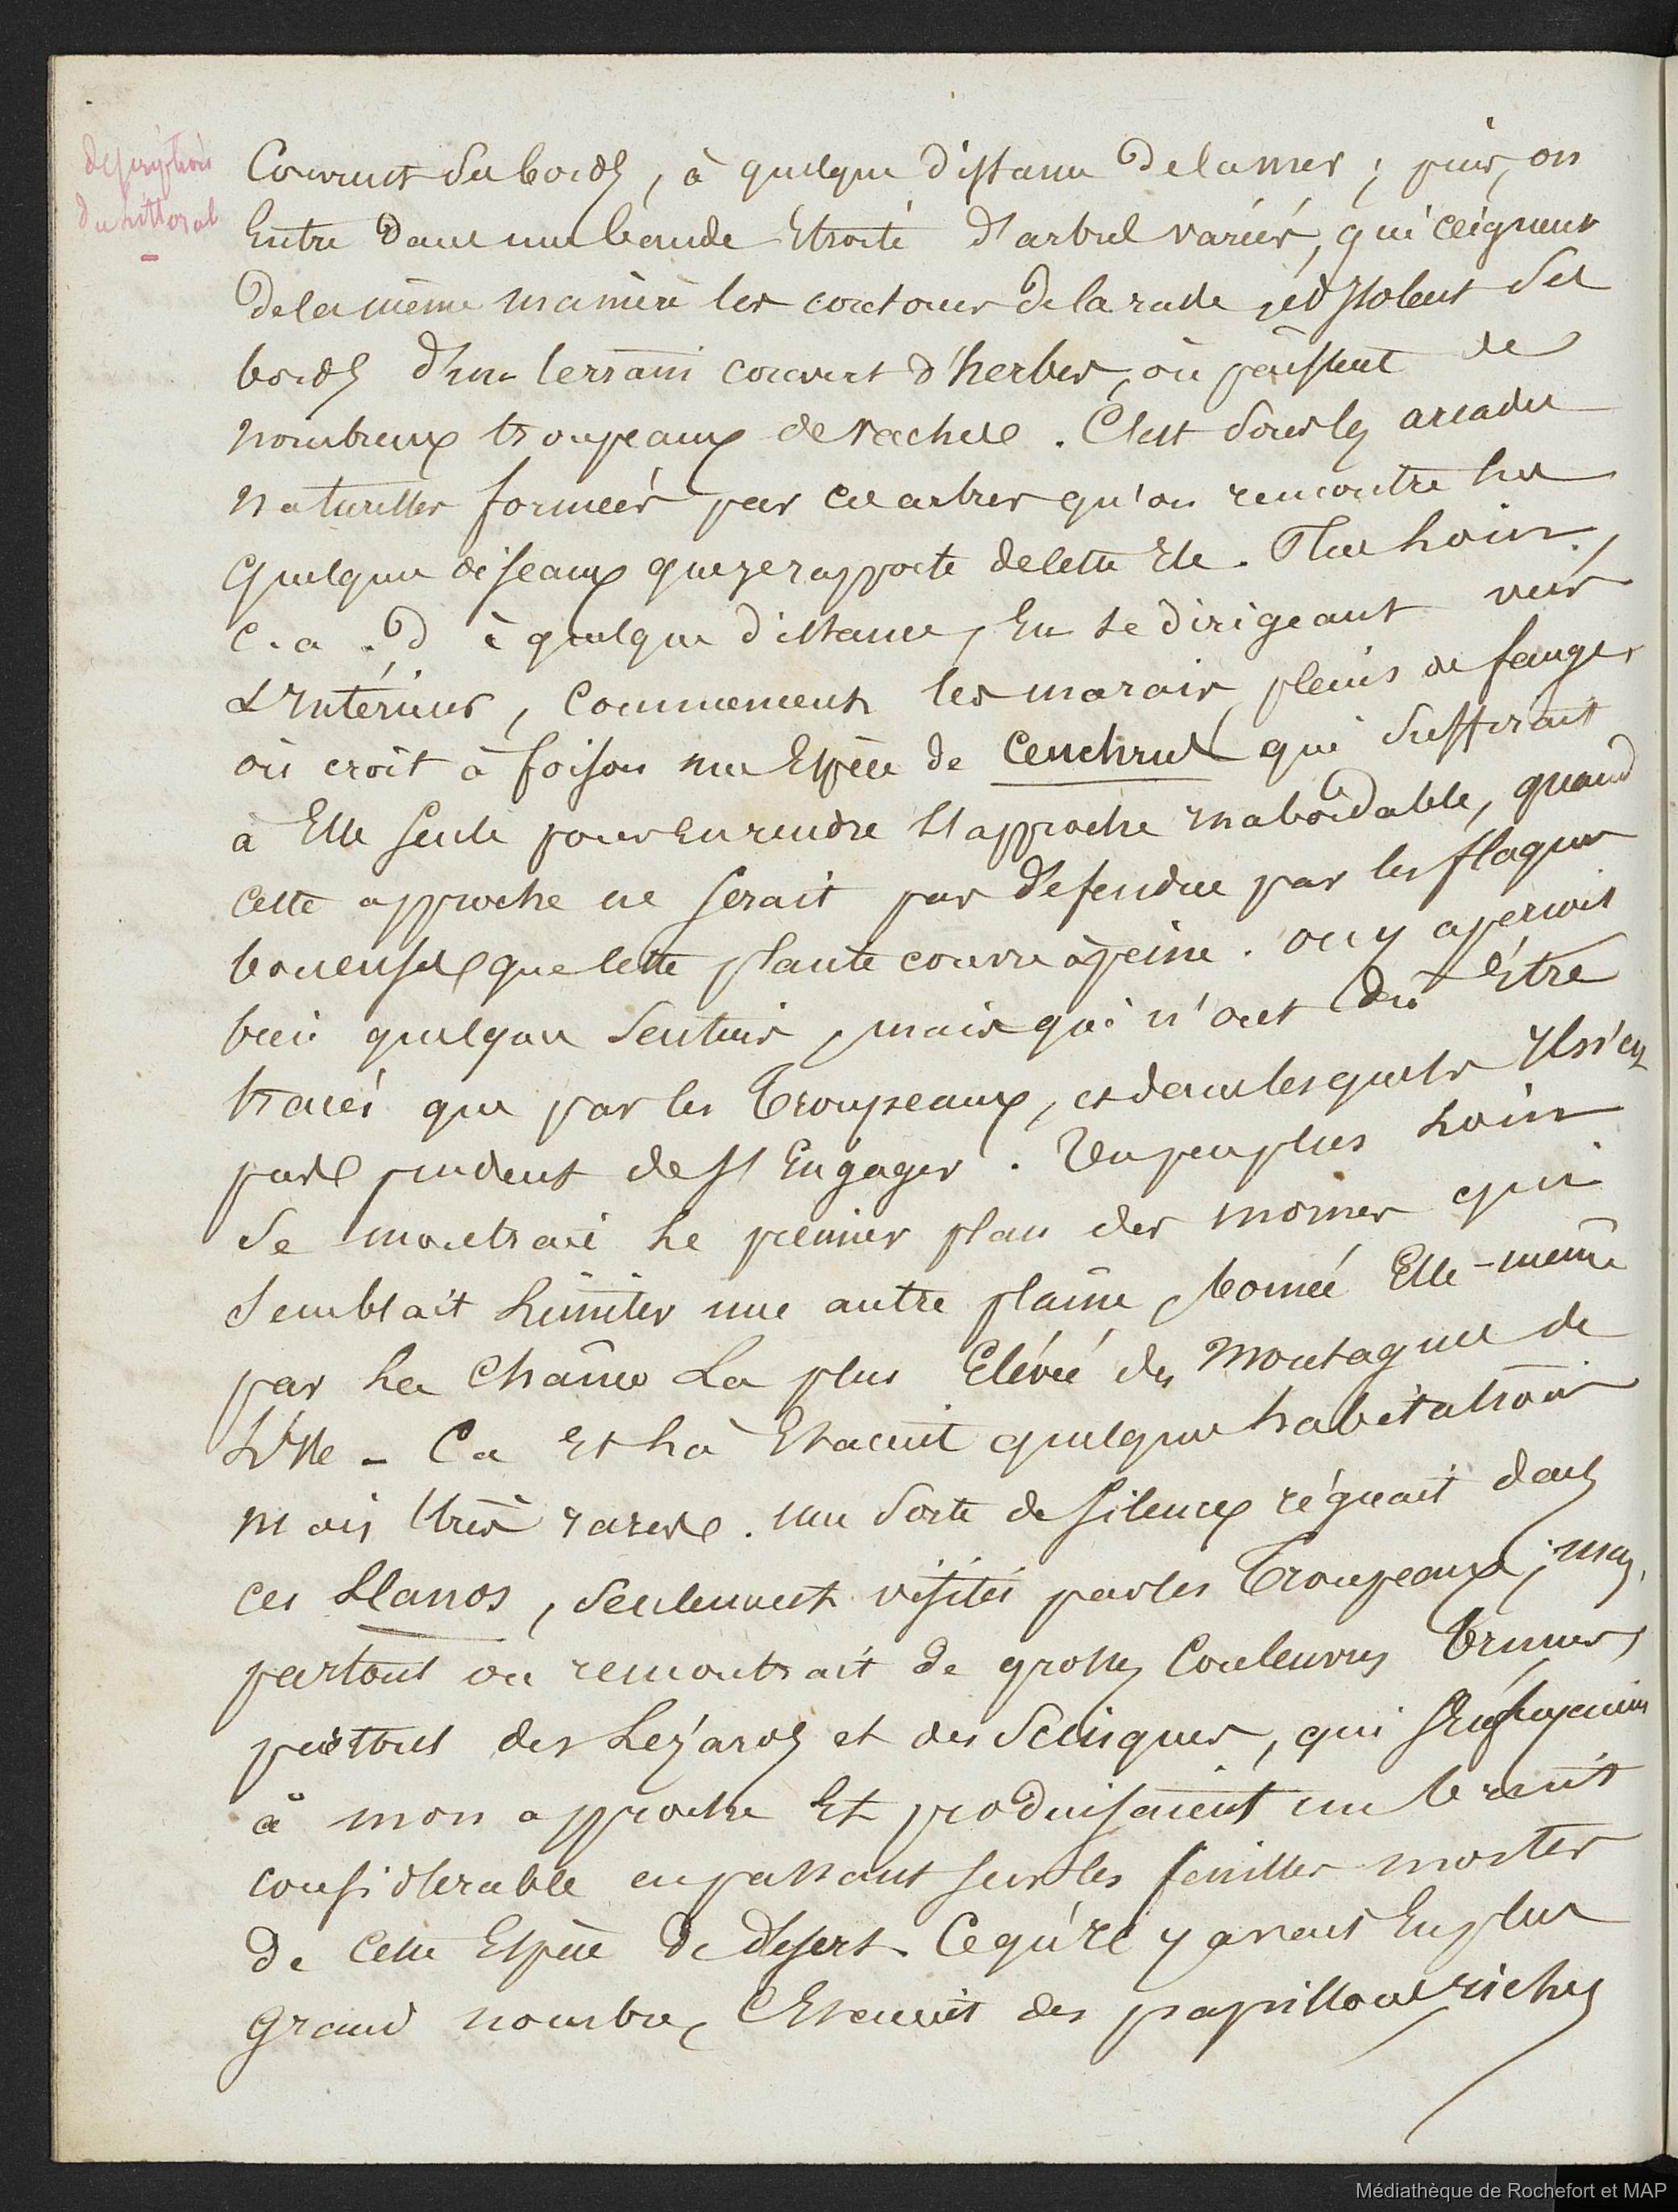 description
du littoral
Couvrent ses bords, à quelque distance de la mer ; puis, on
Entre dans une bande Etroite d'arbres variés, qui ceignent
de la même manière les contours de la rade, et isolent ses
bords d'un terrain couvert d'herbes, où paissent de
nombreux troupeaux de vaches. C'est sous les arcades
naturelles formées par ces arbres qu'on rencontre les
quelques oiseaux que je rapporte de cette Ile. Plus Loin,
c. a. d à quelque distance, En se dirigeant vers
L'Intérieur, Commencent les marais pleins de fanges
où croît à foison une Espèce de Cenchrus qui suffirait
à Elle seule pour en rendre l'approche inabordable, quand
cette approche ne serait pas défendue par les flaques
boueuses que cette plante couvre à peine. on y aperçoit
bien quelques Sentiers, mais qui n'ont dû Être
tracés que par les Troupeaux, et dans lesquels Il n'est
pas prudent de s'Engager. Un peu plus Loin
Se montrait Le premier plan des mornes qui
Semblait Limiter une autre plaine, bornée Elle-même
par La Chaîne La plus Elévée des Montagnes de
L'Ile - Ca Et Là Etaient quelques habitations
mais très rares. une Sorte de silence régnait dans
ces Llanos, seulement visités par les Troupeaux ; mais,
partout on rencontrait de grosses Couleuvres brunes,
partout des Lézards et des Scinques, qui s'enfuyaient
à mon approche Et produisaient un bruit
considérable en passant sur les feuilles mortes
de cette Espèce de désert. Ce qu'Il y avait En plus
grand nombre, C'Etaient des papillons riches
Médiathèque de Rochefort et MAP